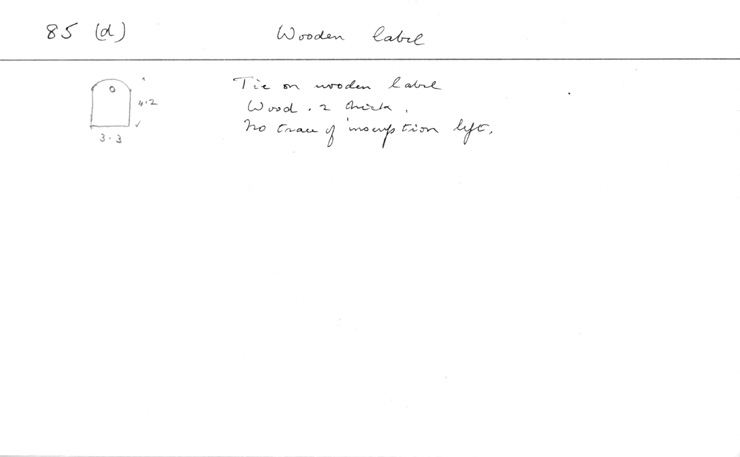 85 (d) Wooden label
Tie on wooden label
4.2
Wood .2 thick.
No trace of inscription left.
3.3